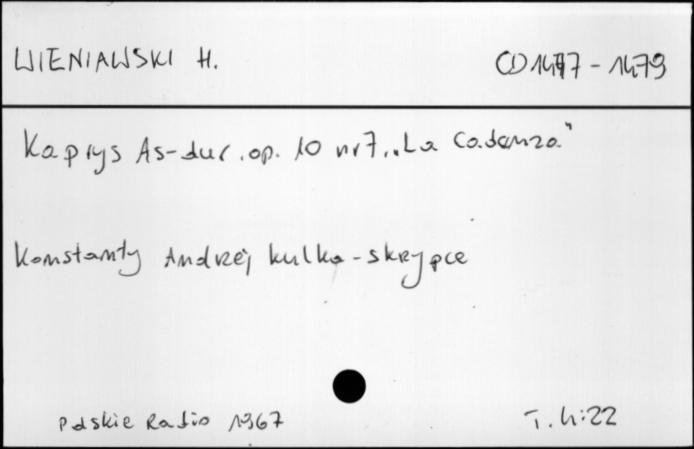 WIENIAWSKI H. CD 1477 - 1479
Kaprys As-dur. op. 10 nr 7 „La Cadenza"
Konstanty Andrzej Kulka - skrzypce
Polskie Radio 1967 T. 4:22